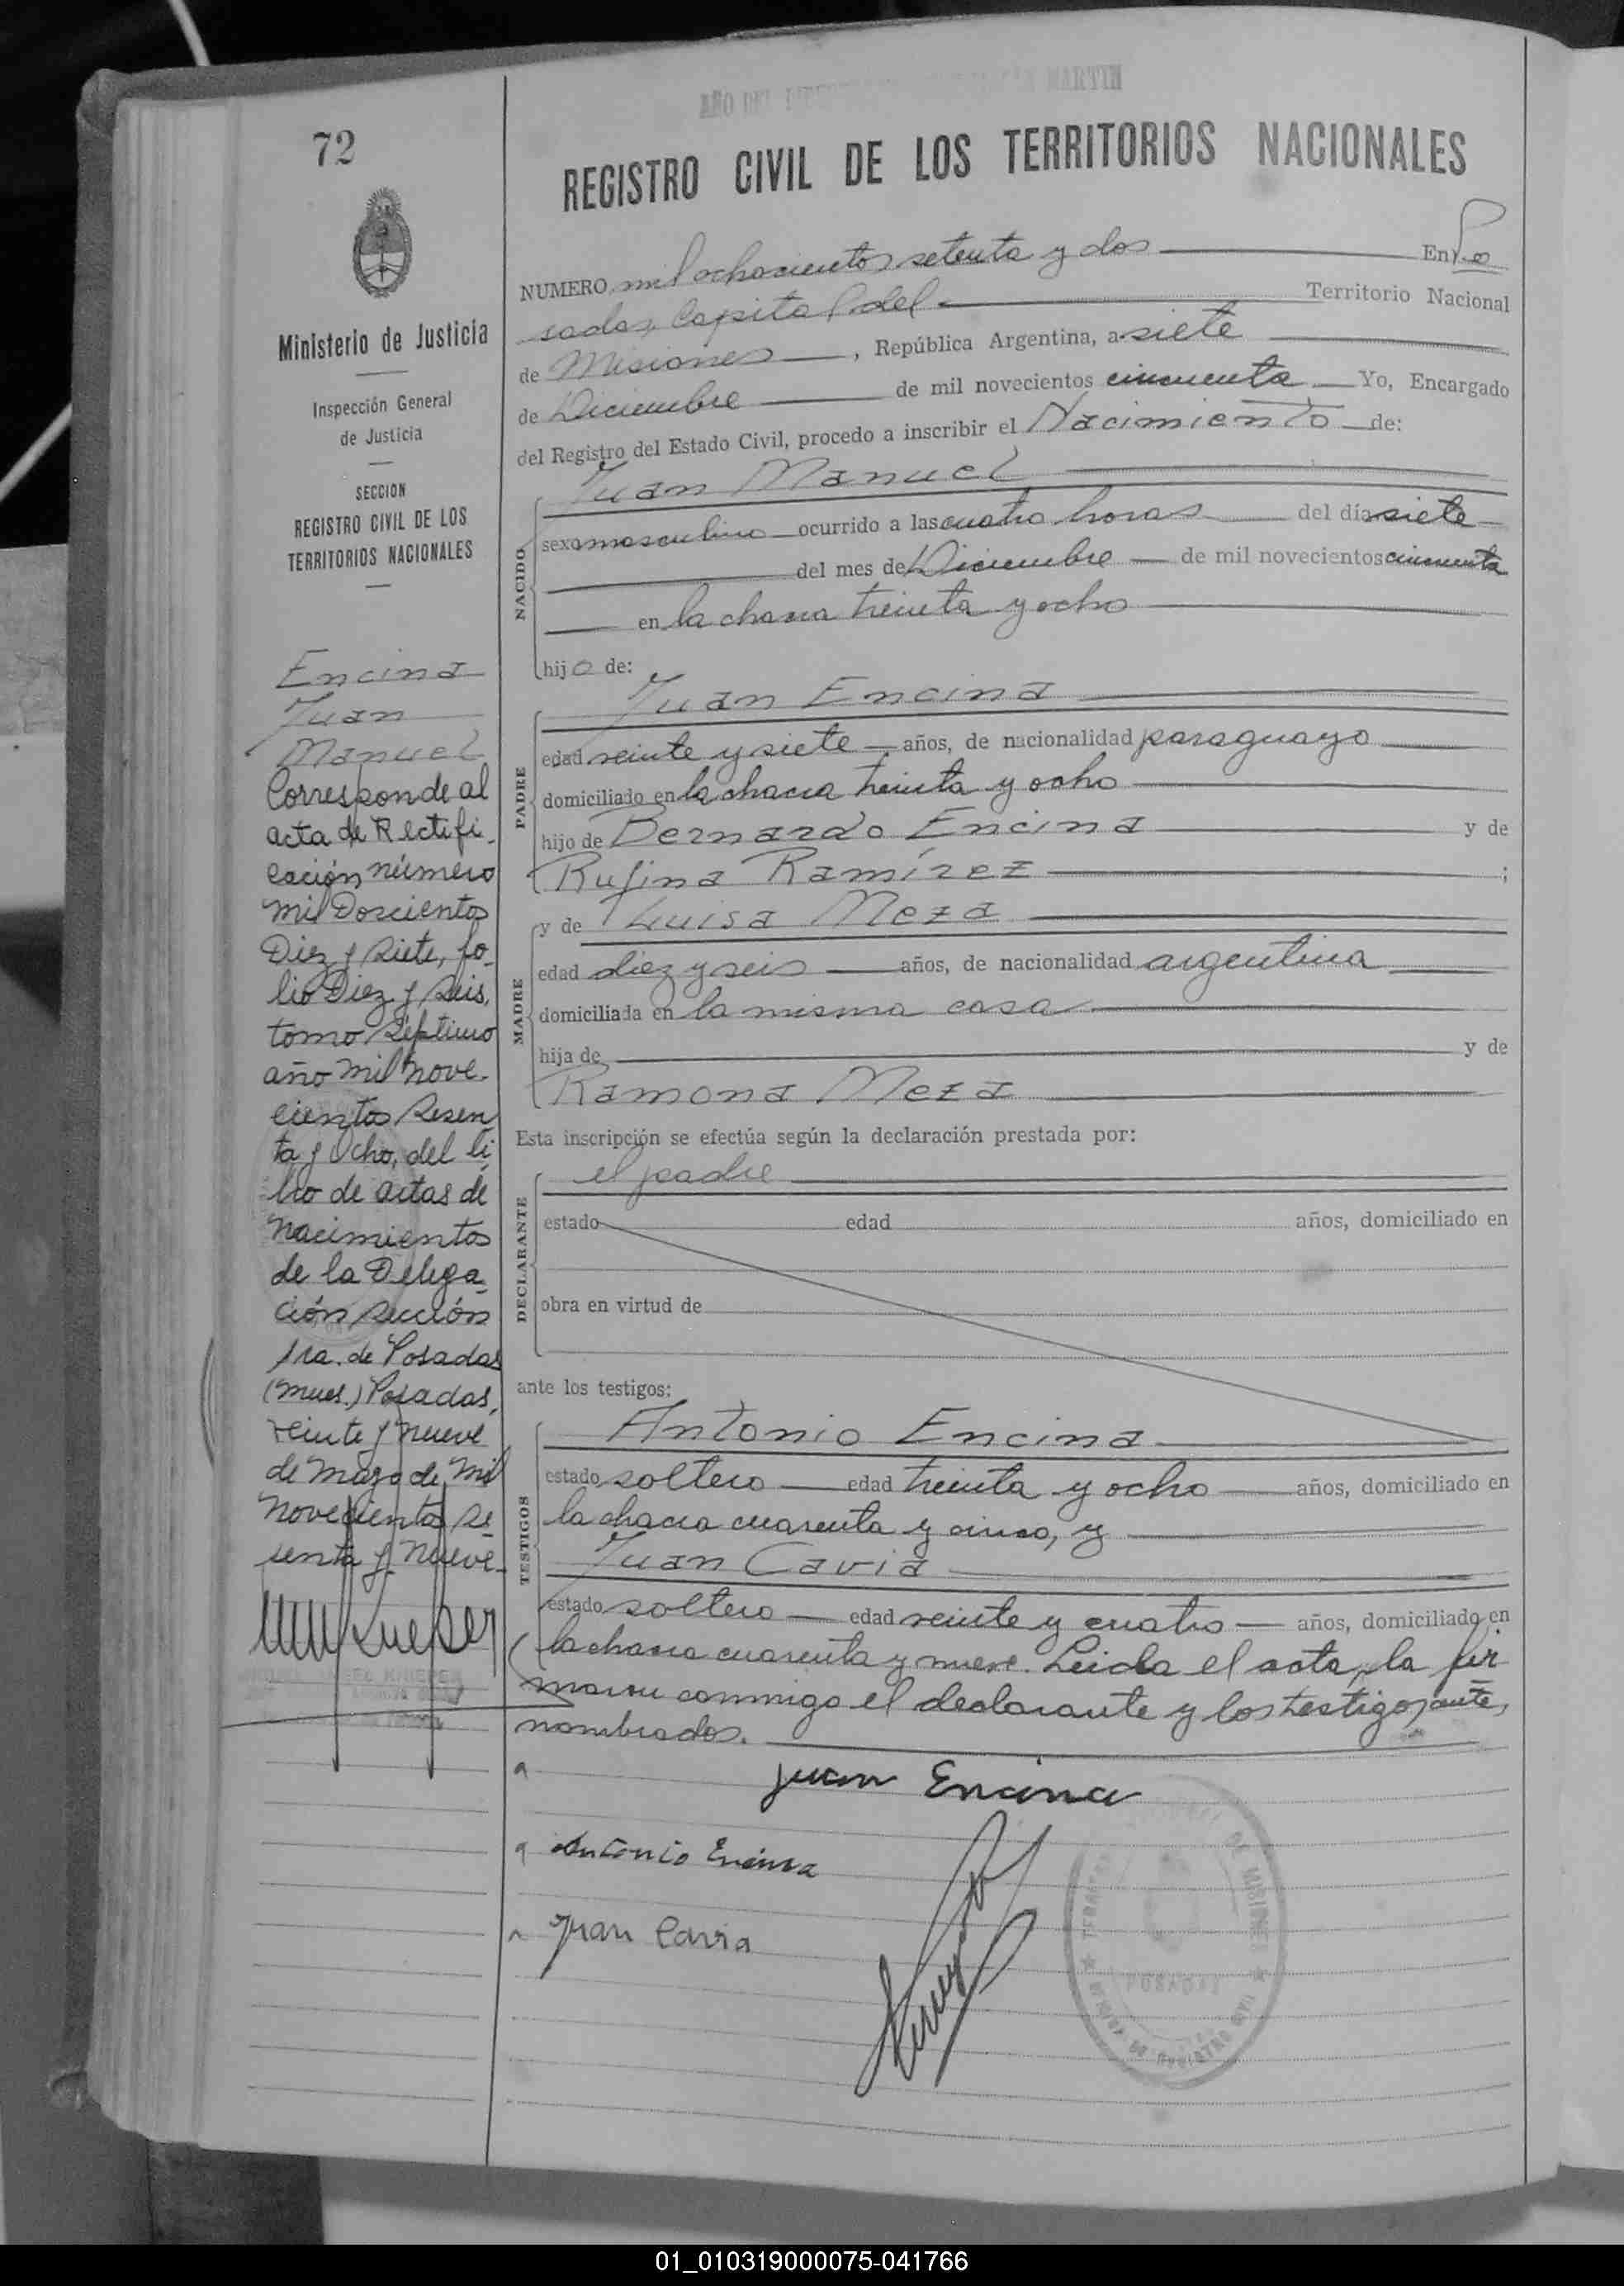 AÑO DEL MARTIN
72
REGISTRO CIVIL DE LOS TERRITORIOS NACIONALES
Ministerio de Justicia
Inspección General
de Justicia
SECCION
REGISTRO CIVIL DE LOS
TERRITORIOS NACIONALES
Encina
Juan
Manuel
Corresponde al
acta de Rectifi-
cación número
mil Doscientos
Diez y Siete, fo-
lio Diez y Seis,
tomo Séptimo
año mil nove-
cientos Sesen
ta y Ocho, del li
bro de actas de
nacimientos
de la Delega-
ción sección
1ra. de Posadas
(mnes.) Posadas,
veinte y nueve
de mayo de mil
novecientos se
senta y nueve-
NUMERO mil ochocientos setenta y dos En Po
sadas, Capital del Territorio Nacional
de Misiones, República Argentina, a siete
de Diciembre de mil novecientos cincuenta Yo, Encargado
del Registro del Estado Civil, procedo a inscribir el Nacimiento de:
Juan Manuel
NACIDO
sexo masculino ocurrido a las cuatro horas del día siete
del mes de Diciembre de mil novecientos cincuenta
en la chacra treinta y ocho
hijo de:
Juan Encina
PADRE
edad veinte y siete años, de nacionalidad paraguayo
domiciliado en la chacra treinta y ocho
hijo de Bernardo Encina y de
Rufina Ramírez ;
y de Luisa Meza
MADRE
edad diez y seis años, de nacionalidad argentina
domiciliada en la misma casa
hija de y de
Ramona Meza
Esta inscripción se efectúa según la declaración prestada por:
el padre
DECLARANTE
estado edad años, domiciliado en
obra en virtud de
ante los testigos:
Antonio Encina
TESTIGOS
estado soltero edad treinta y ocho años, domiciliado en
la chacra cuarenta y cinco, y
Juan Cavia
estado soltero edad veinte y cuatro años, domiciliado en
la chacra cuarenta y nueve. Leida el acta, la fir
maron conmigo el declarante y los testigos ante,
nombrados.
Juan Encina
Antonio Encina
Juan Cavia
POSADAS
01_010319000075-041766